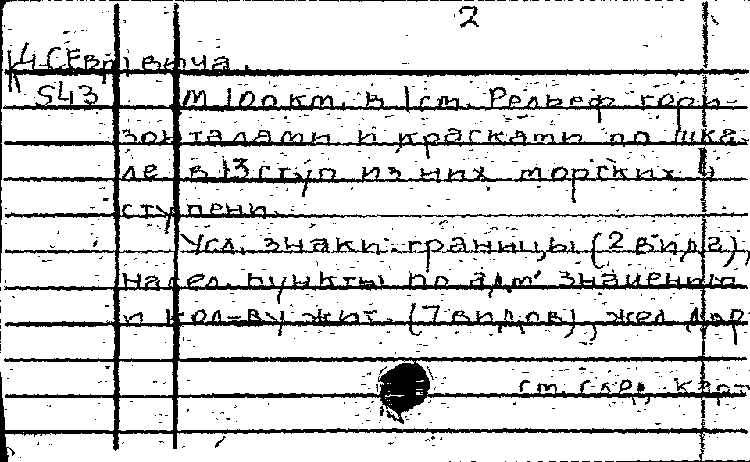 2
К4 СЕвр вича.
S43 М 100 км. в 1 см. Рельеф гори-
зонталами и красками по шка-
ле в 13 ступ из них морских 4
ступени.
Усл. знаки: границы (2 вида),
насел. пункты по адм. значению
и кол-ву жит. (7 видов), жел дор
см. след. кар-